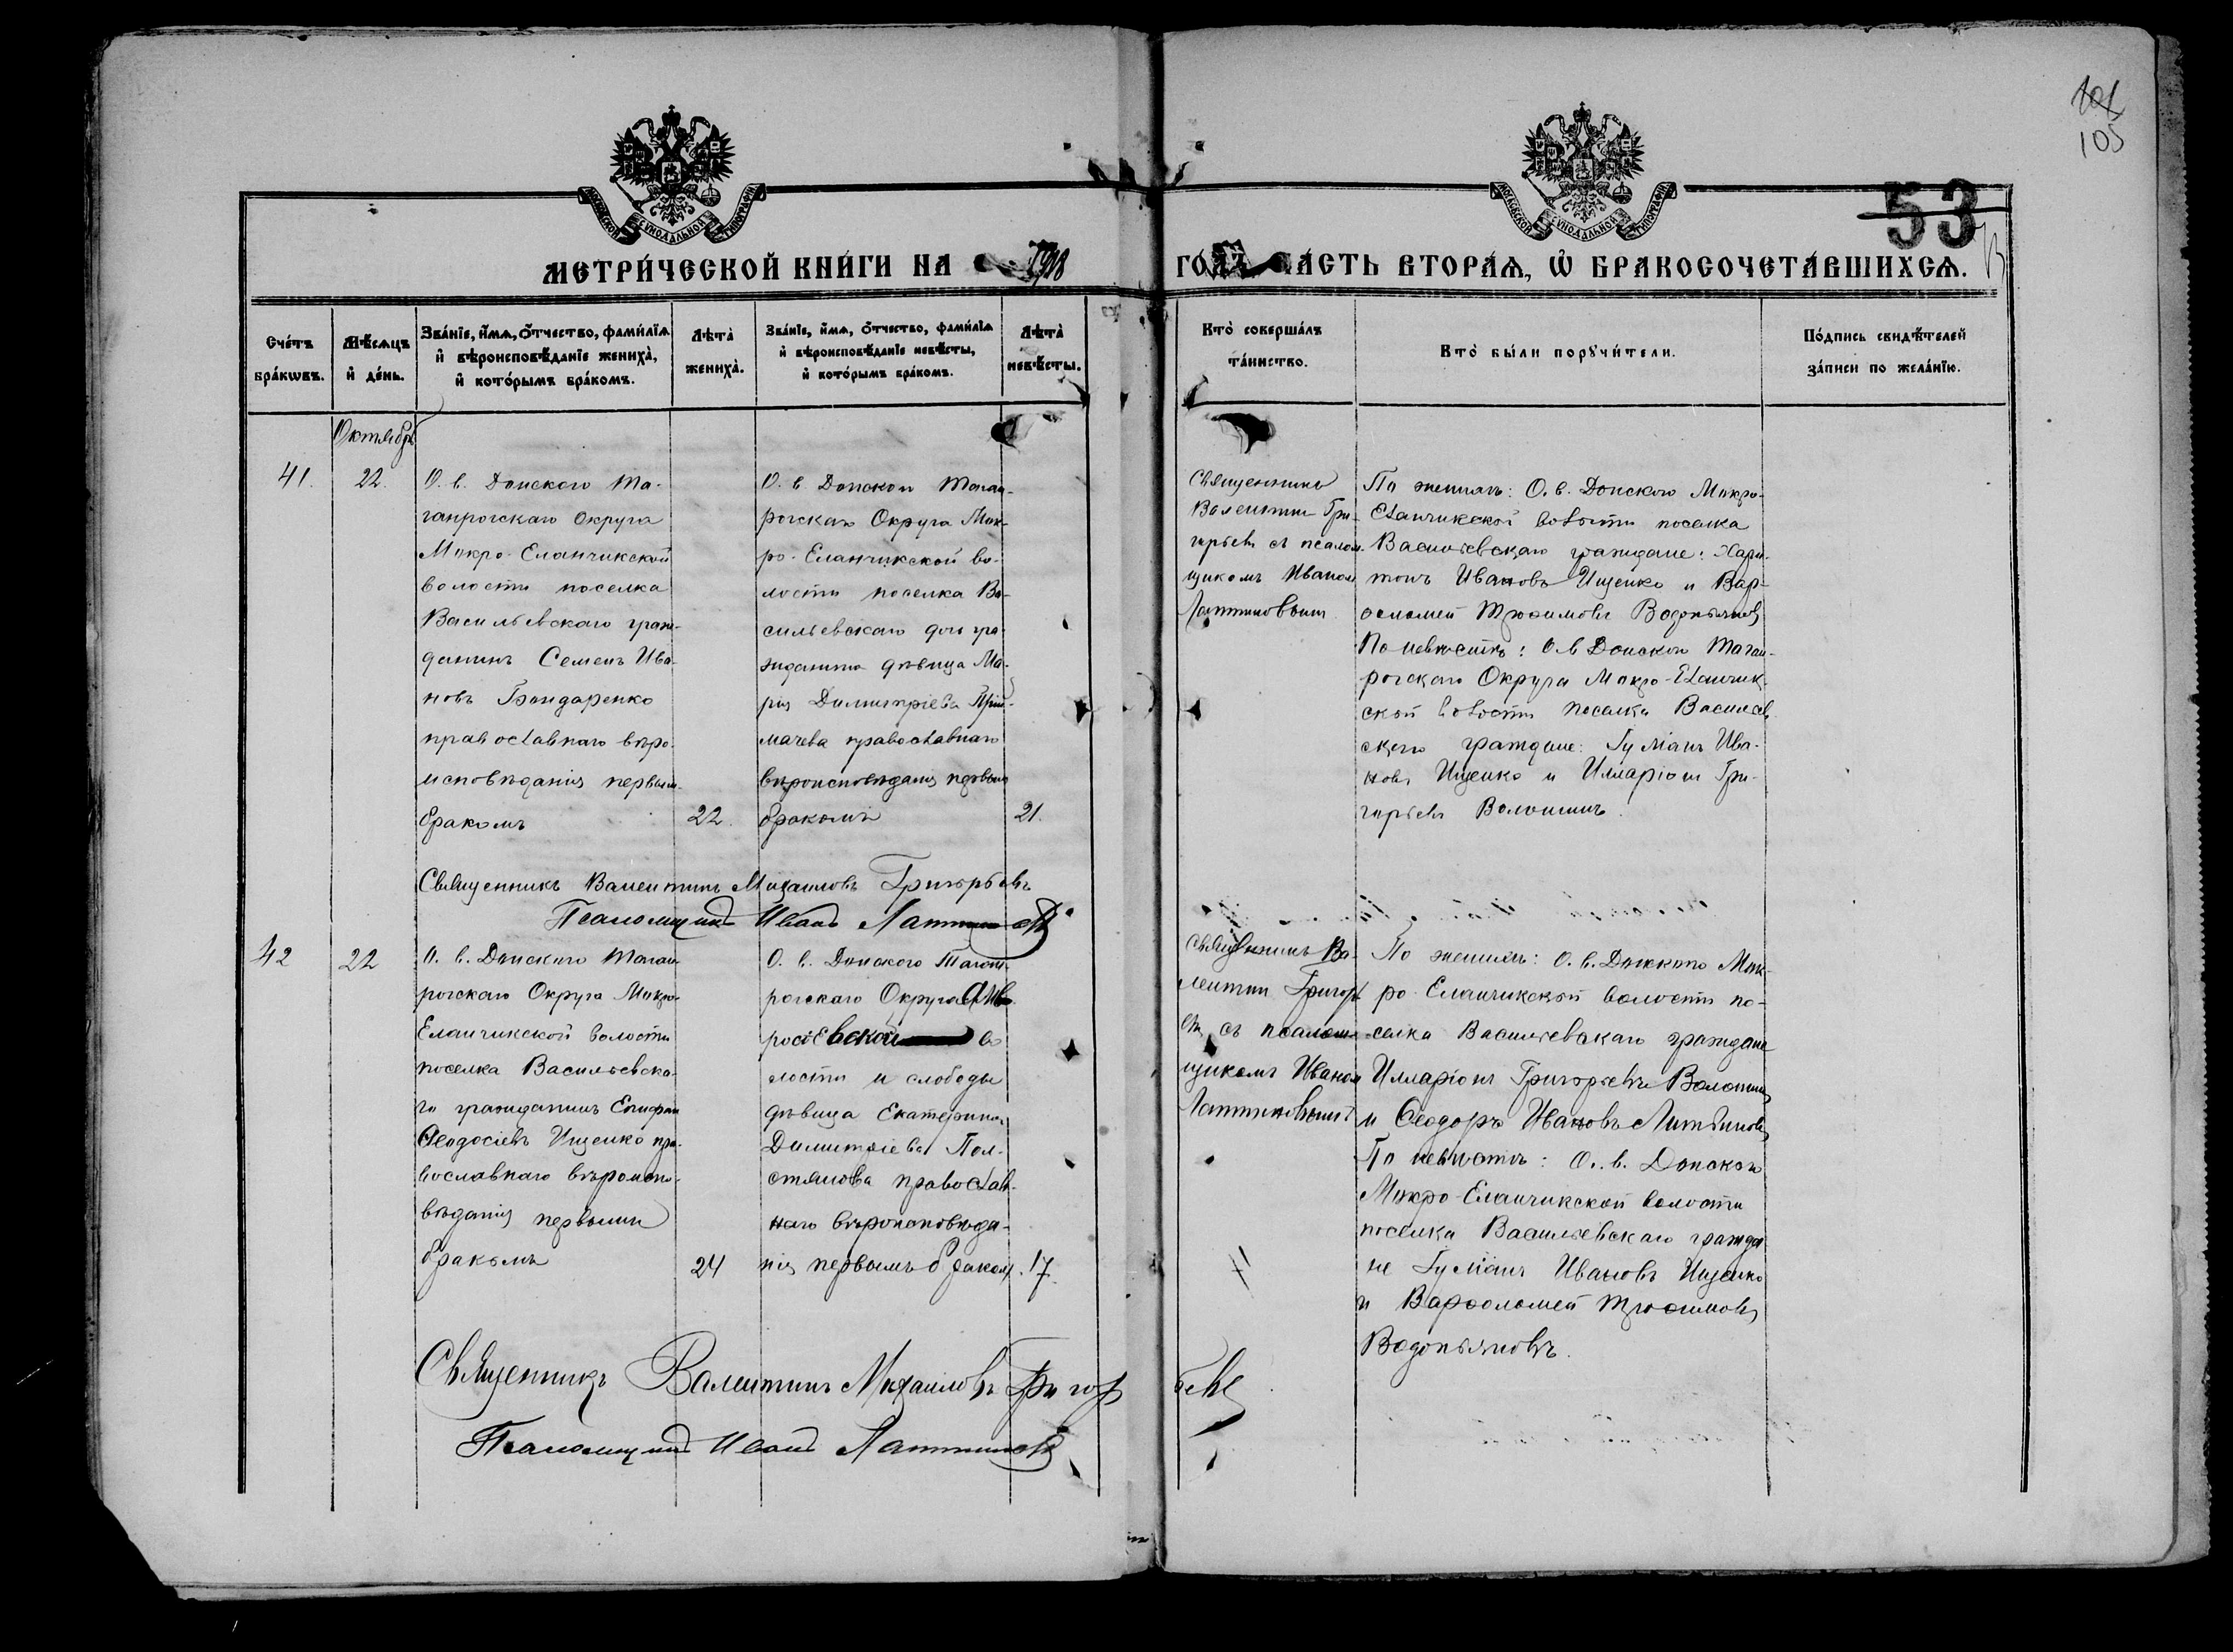 101
105
53
МОСКОВСКОЙ СѴНОДАЛЬНОЙ ТИПОГРАФІИ
МОСКОВСКОЙ СѴНОДАЛЬНОЙ ТИПОГРАФІИ
МЕТРИ́ЧЕСКОЙ КНИ́ГИ НА 1918
ГОДЪ ЧАСТЬ ВТОРА́Я, Ѽ БРАКОСОЧЕТА́ВШИХСѦ.
Сче́тъ
бра́кѡвъ.
Мѣ́сяцъ
и҆ де́нь.
Зва́нїе, и҆́мѧ, о҆́тчество, фами́лїѧ
и҆ вѣроисповѣ́данїе жениха̀,
и҆ кото́рымъ бра́комъ.
Лѣта̀
жениха̀.
Зва́нїе, и҆́мѧ, о҆́тчество, фами́лїѧ
и҆ вѣроисповѣ́данїе невѣ́сты,
и҆ кото́рымъ бра́комъ.
Лѣта̀
невѣ́сты.
Кто̀ соверша́лъ
та́инство.
Кто̀ бы́ли порꙋчи́тели.
По́дпись свидѣ́телей
за́писи по жела́нїю.
Октябрь
41.
22.
О. в. Донского Та-
ганрогскаго Округа
Мокро-Еланчикской
волости поселка
Васильевскаго граж-
данинъ Семенъ Ива-
новъ Бондаренко
православнаго веро-
исповѣданія первым
бракомъ
22.
О. в. Донского Таган-
рогскаго Округа Мок-
ро-Еланчикской во-
лости поселка Ва-
сильевскаго дочь гра-
жданина дѣвица Ма-
рія Димитріева Прій-
мачева православнаго
вѣроисповѣданія первым
бракомъ
21.
Священникъ
Валентинъ Гри-
горьевъ съ псалом-
щикомъ Иваном
Лаптиновым
По женихѣ: О. в. Донского Мокро-
Еланчикской волости поселка
Васильевскаго граждане: Хари-
тонъ Ивановъ Ищенко и Вар-
ѳоломей Трофимовъ Водопьяновъ
По невѣстѣ: О. в Донского Таган-
рогскаго Округа Мокро-Еланчик-
ской волости поселка Васильев
скаго граждане: Гуліанъ Ива-
новъ Ищенко и Илларіонъ Гри-
горьевъ Волошинъ.
Священникъ Валентинъ Михаиловъ Григорьевъ
Псаломщикъ Иванъ Лаптиновъ
42
22
О. в. Донского Таган-
рогскаго Округа Мокро-
Еланчикской волости
поселка Васильевска-
го гражданинъ Епифан
Ѳеодосіевъ Ищенко пра-
вославнаго вѣроиспо-
вѣданія первымъ
бракомъ
24
О. в. Донского Таган-
рогскаго Округа Амв
росіевской во
лости и слободы
дѣвица Екатерина
Димитріева Пол-
стянова православ-
наго вѣроисповѣда-
нія первымъ бракомъ.
17.
Священникъ Ва-
лентин Григорь
евъ съ псалом-
щикомъ Иваном
Лаптиновым
По женихѣ: О. в. Донского Мок-
ро-Еланчикской волости по-
селка Васильевскаго граждане
Илларіонъ Григорьевъ Волошинъ
и Ѳеодоръ Ивановъ Литвиновъ
По невѣстѣ: О. в. Донского
Мокро-Еланчикской волости
поселка Васильевскаго гражда
не Гуліанъ Ивановъ Ищенко
и Варѳоломей Трофимовъ
Водопьяновъ.
Священникъ Валентинъ Михаиловъ Григорьевъ
Псаломщикъ Иванъ Лаптиновъ